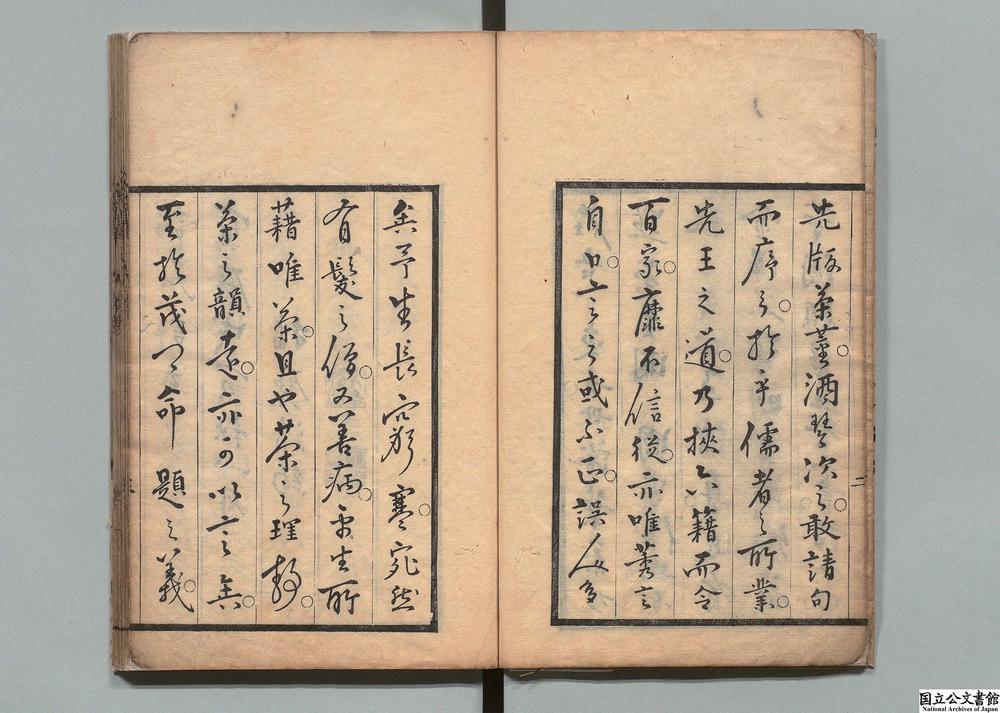 先版茶菫酒琴次之敢請句
而序之於乎儒者之所業
先王之道乃挾六籍而令
百家靡不信従亦唯莠言
自口言之或不正誤人多
矣予生長穷 蹇宛然
有髪之僧又善病平生所
藉唯茶且也茶之理静
茶之韻遠亦可以言矣
至於茂 命題之義
二
国立公文書館
National Archives of Japan